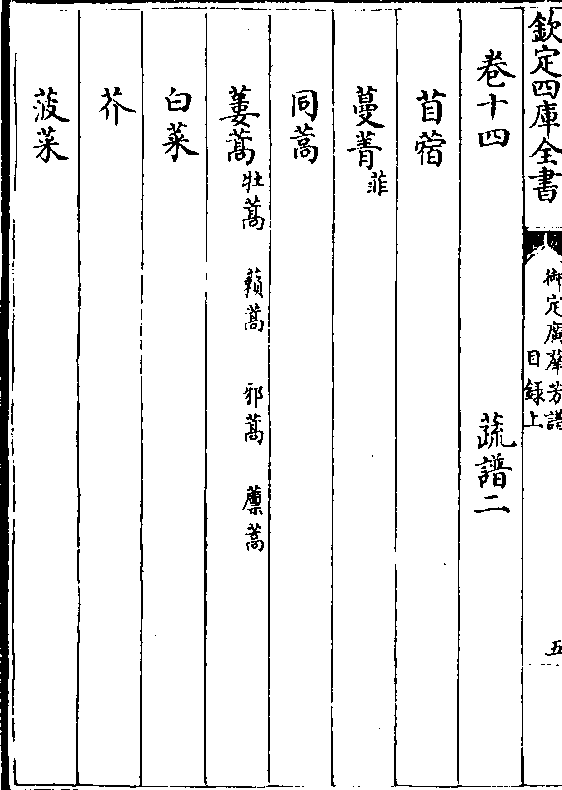 欽定四庫全書
御定廣羣芳譜
目録上
五
卷十四 蔬譜二
苜蓿
蔓菁 菲
同蒿
蔞蒿 牡蒿 藾蒿 邪蒿 藨蒿
白菜
芥
菠菜